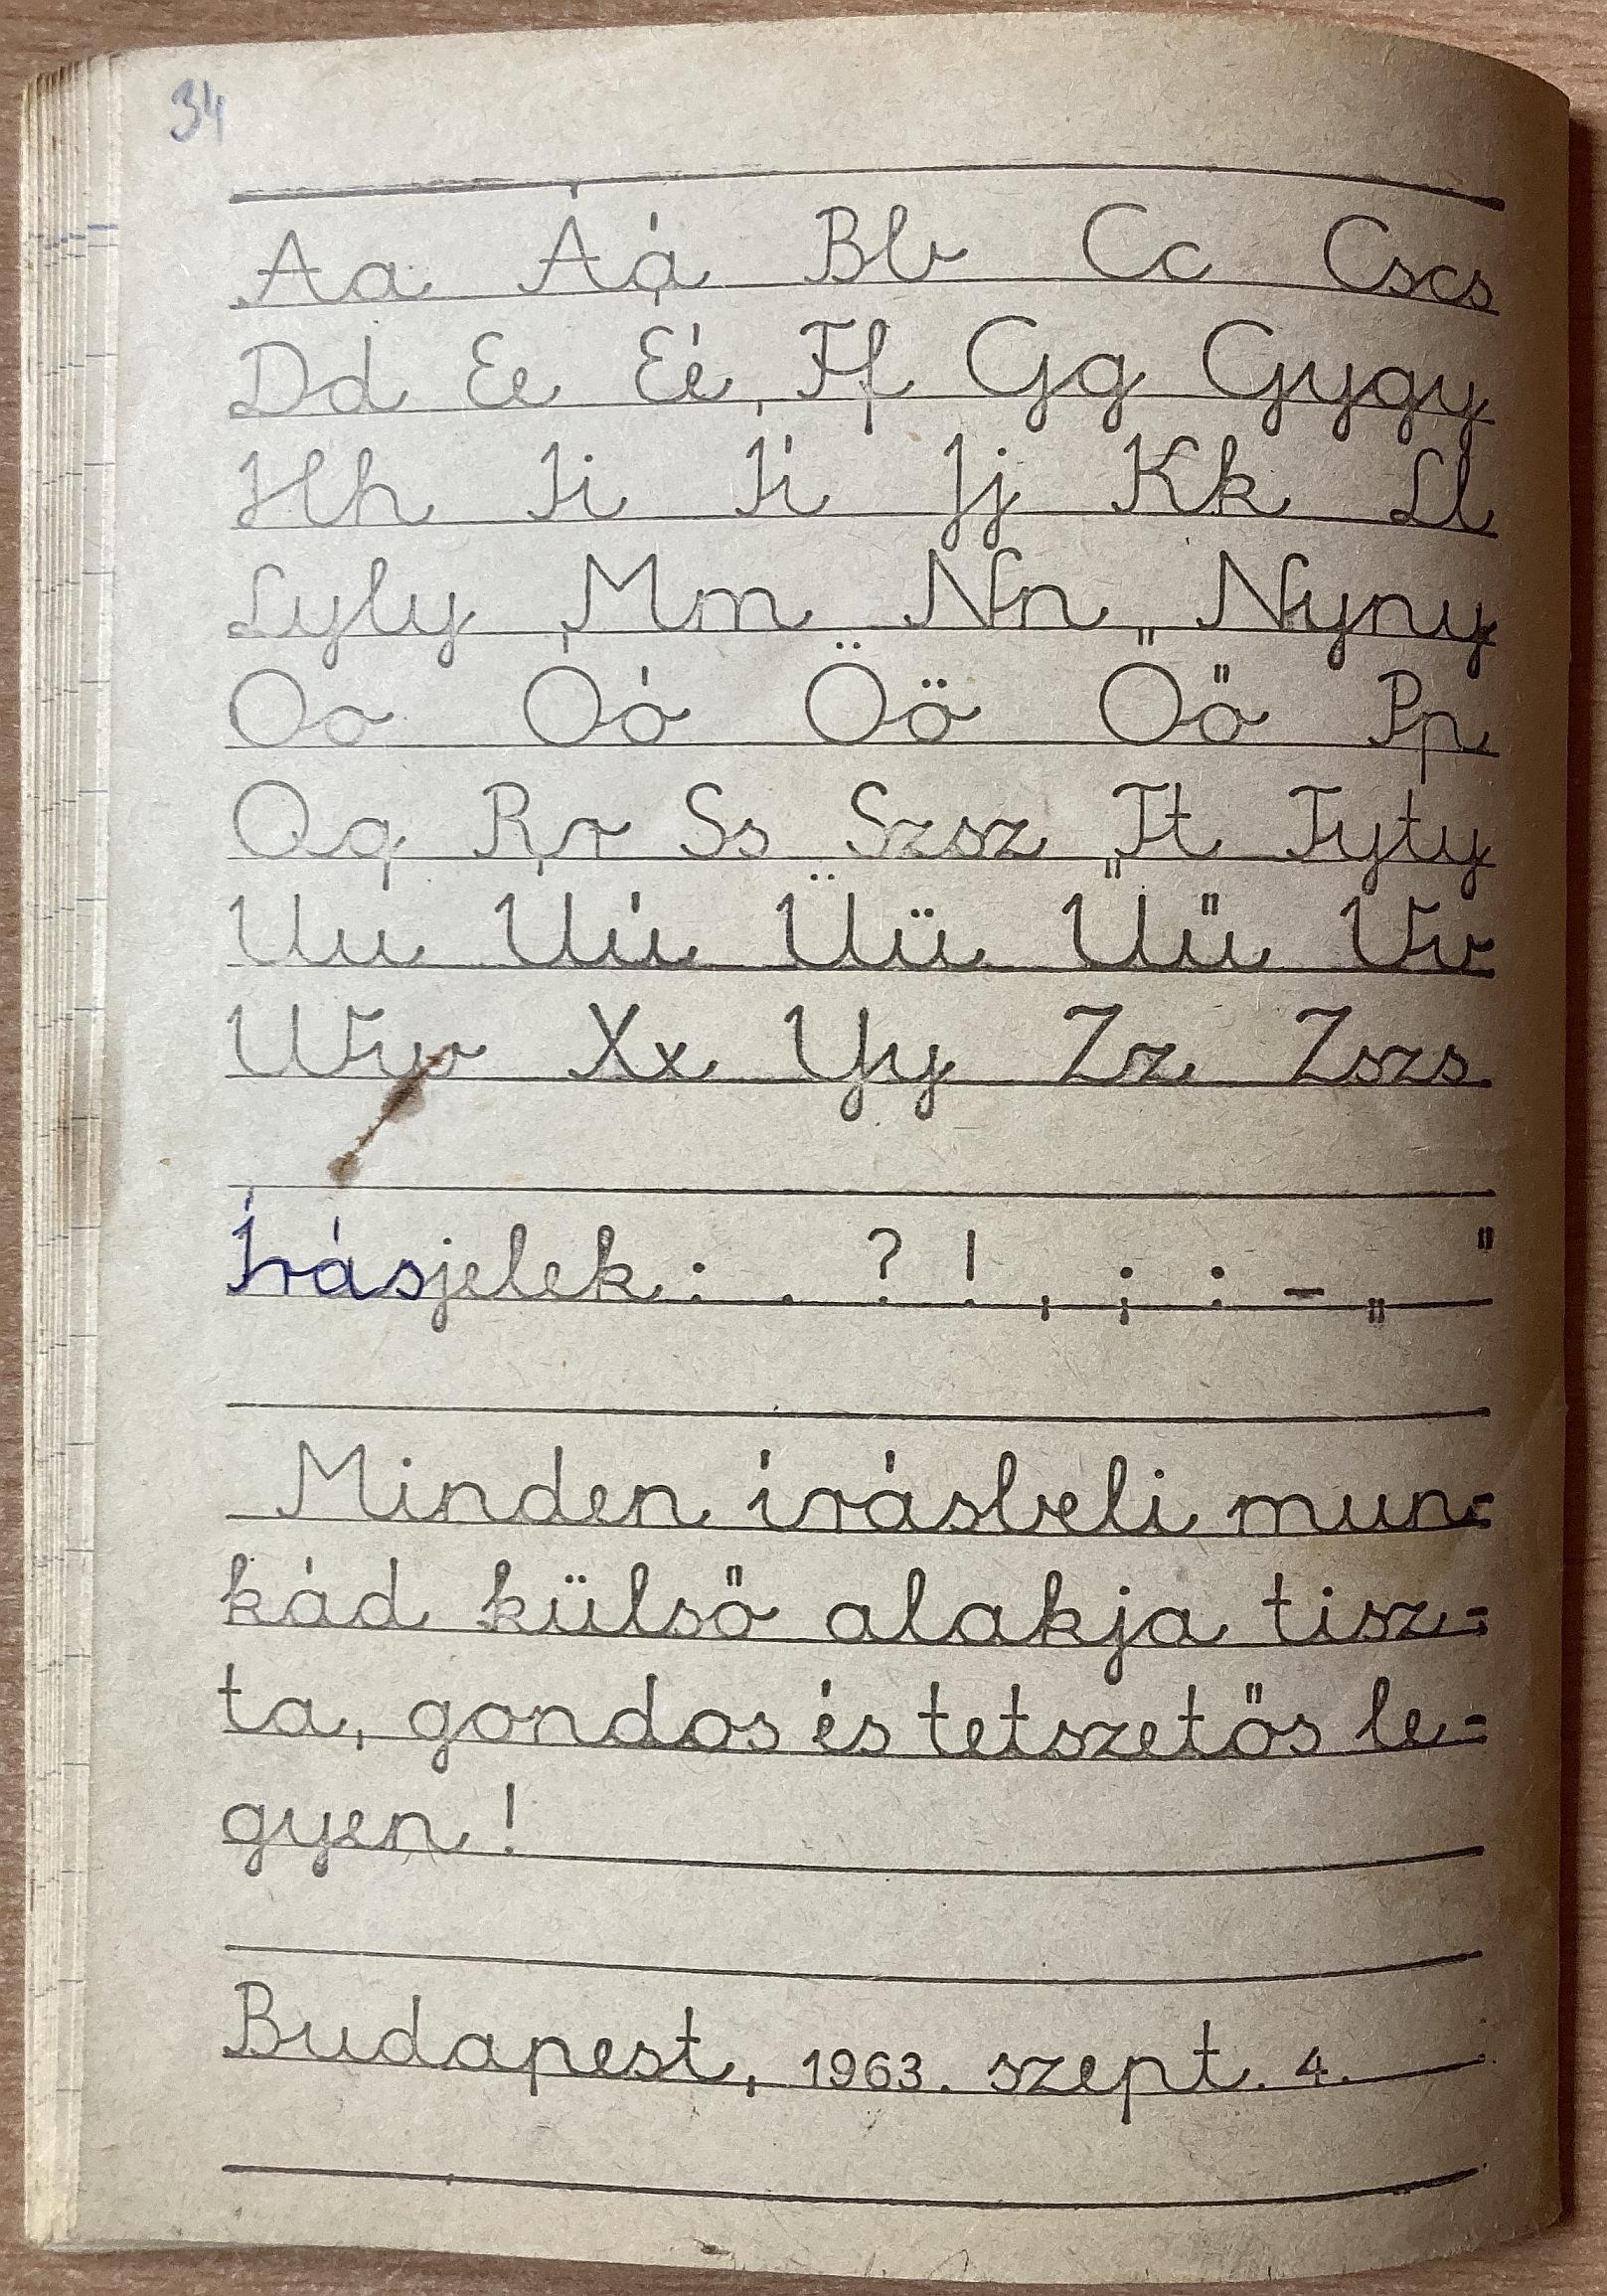 34
Aa Áá Bb Cc Cscs
Dd Ee Éé Ff Gg Gygy
Hh Ii Íí Jj Kk Ll
Lyly Mm Nn Nyny
Oo Óó Öö Őő Pp
Qq Rr Ss Szsz Tt Tyty
Uu Úú Üü Űű Vv
Ww Xx Yy Zz Zszs
Írásjelek: . ? ! , ; : – „ "
Minden írásbeli mun=
kád külső alakja tisz=
ta, gondos és tetszetős le=
gyen!
Budapest, 1963. szept. 4.